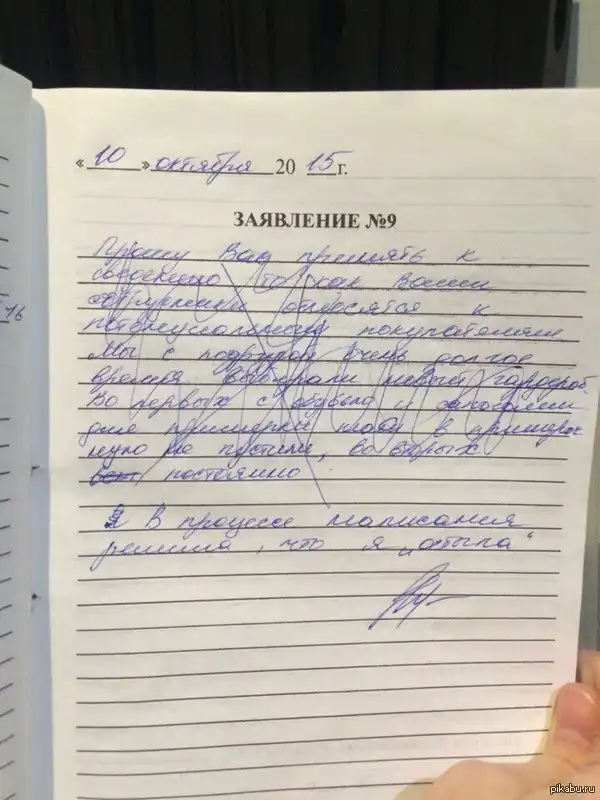 « 10 » октября 20 15 г.
ЗАЯВЛЕНИЕ №9
Прошу Вас принять к
сведению то, как Ваши
относятся к
потенциальному покупателям.
Мы с подругой очень долгое
время выбирали новый гардероб
Во первых с обувью и
для примерки в пример
ную не пустили, во вторых
постоянно
Я В процессе написания
решила, что я „остыла“
16
pikabu.ru